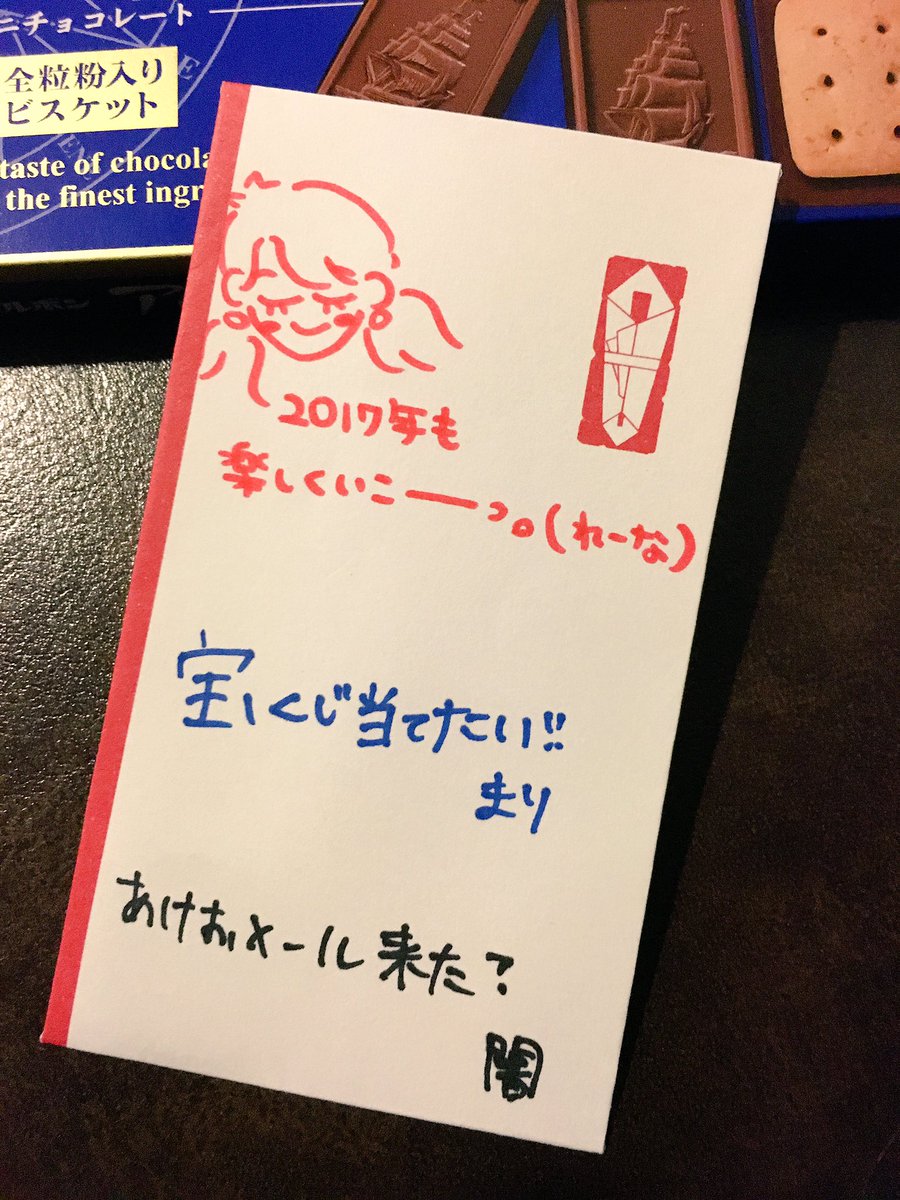 ニチョコレート
全粒粉入り
ビスケット
taste of chocola
the finest ingr
ルボン
2017年も
楽しくいこーーっ。(れーな)
宝くじ当てたい!!
まり
あけおメール来た?
闇